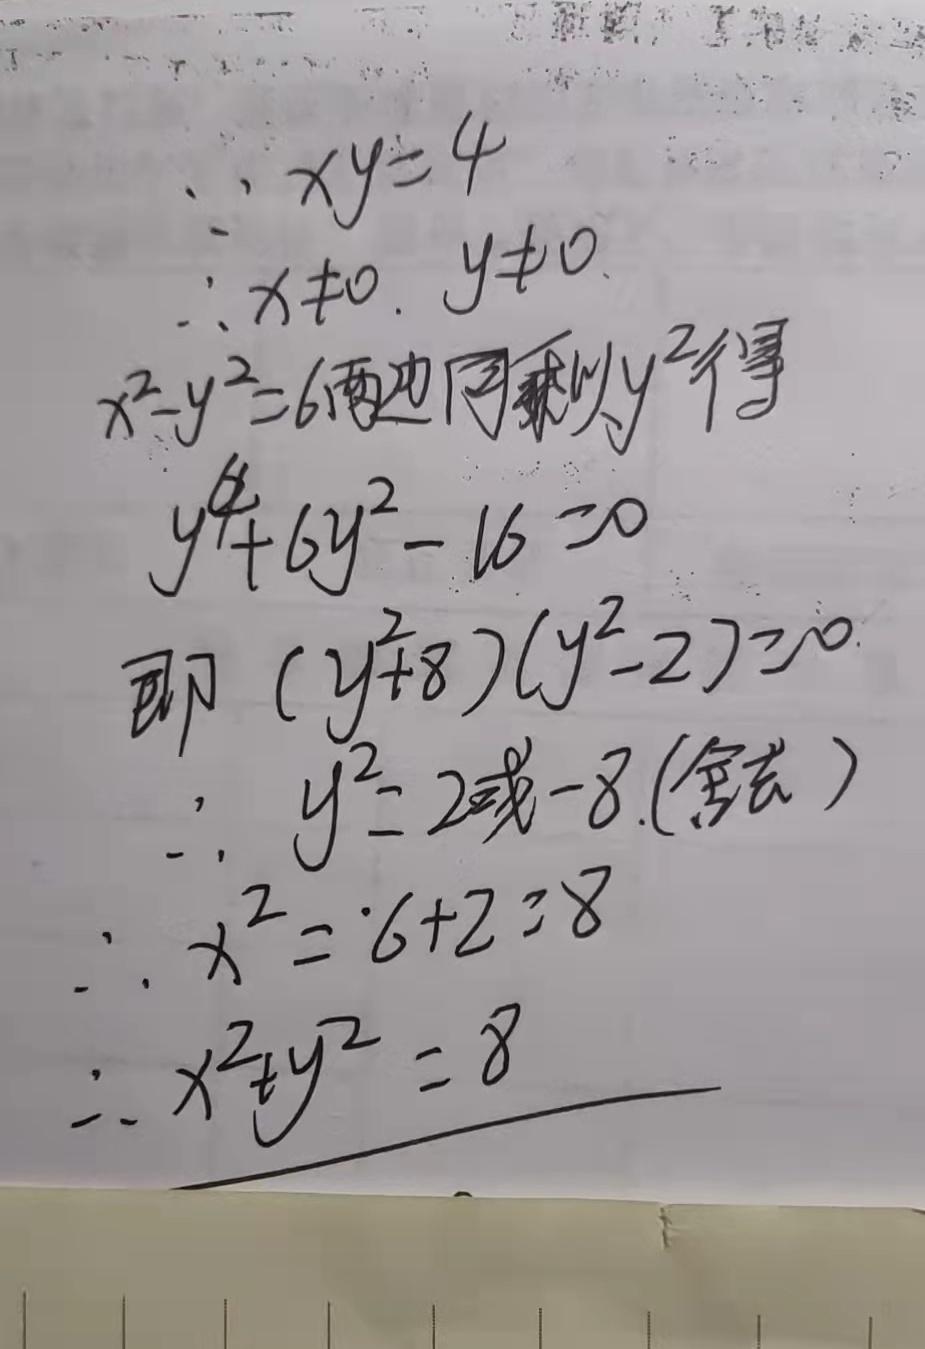 ∵ xy=4
∴ x≠0. y≠0.
x²-y²=6两边同乘以y²得
y⁴+6y²-16=0
即 (y²+8)(y²-2)=0.
∴ y²=2或-8.(舍去)
∴ x²=6+2=8
∴ x²+y²=8